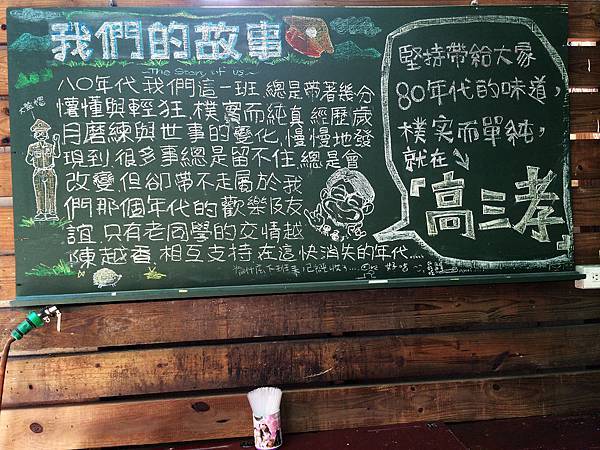 我們的故事
The Story of us
八〇年代我們這一班,總是帶著幾分
懵懂與輕狂,樸實而純真,經歷歲
月磨練與世事的變化,慢慢地發
現到很多事總是留不住,總是會
改變,但卻帶不走屬於我
們那個年代的歡樂及友
誼,只有老同學的交情越
陳越香,相互支持,在這快消失的年代.....
堅持帶給大家
80年代的味道,
樸實而單純,
就在
「高三孝」